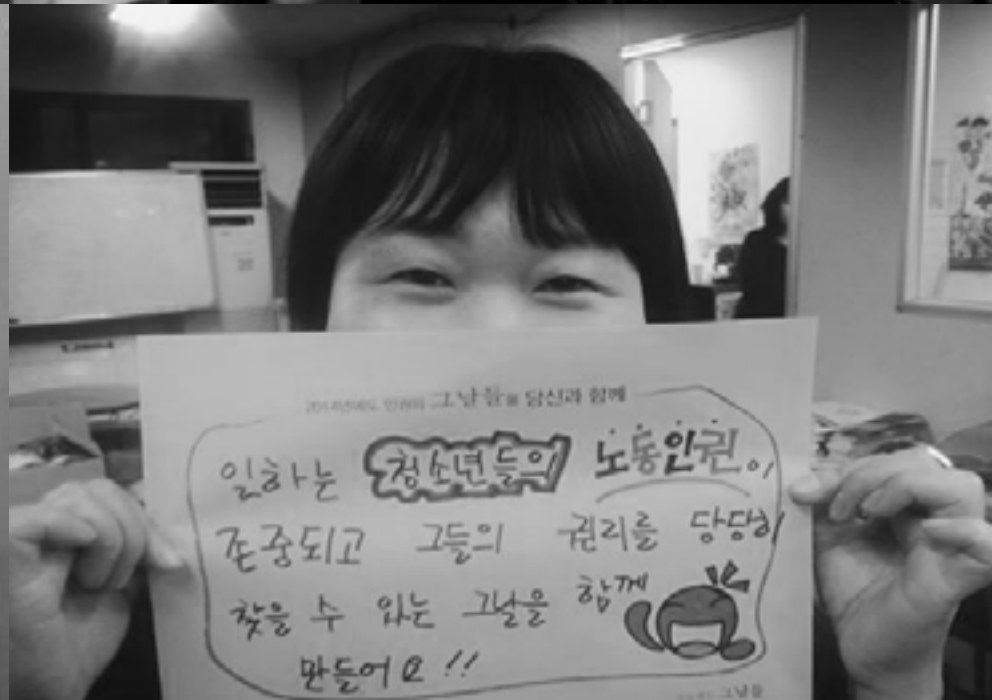 2014년에도 인권의 그날들을 당신과 함께
일하는 청소년들의 노동인권이
존중되고 그들의 권리를 당당히
찾을 수 있는 그날을 함께
만들어요!!
그날들